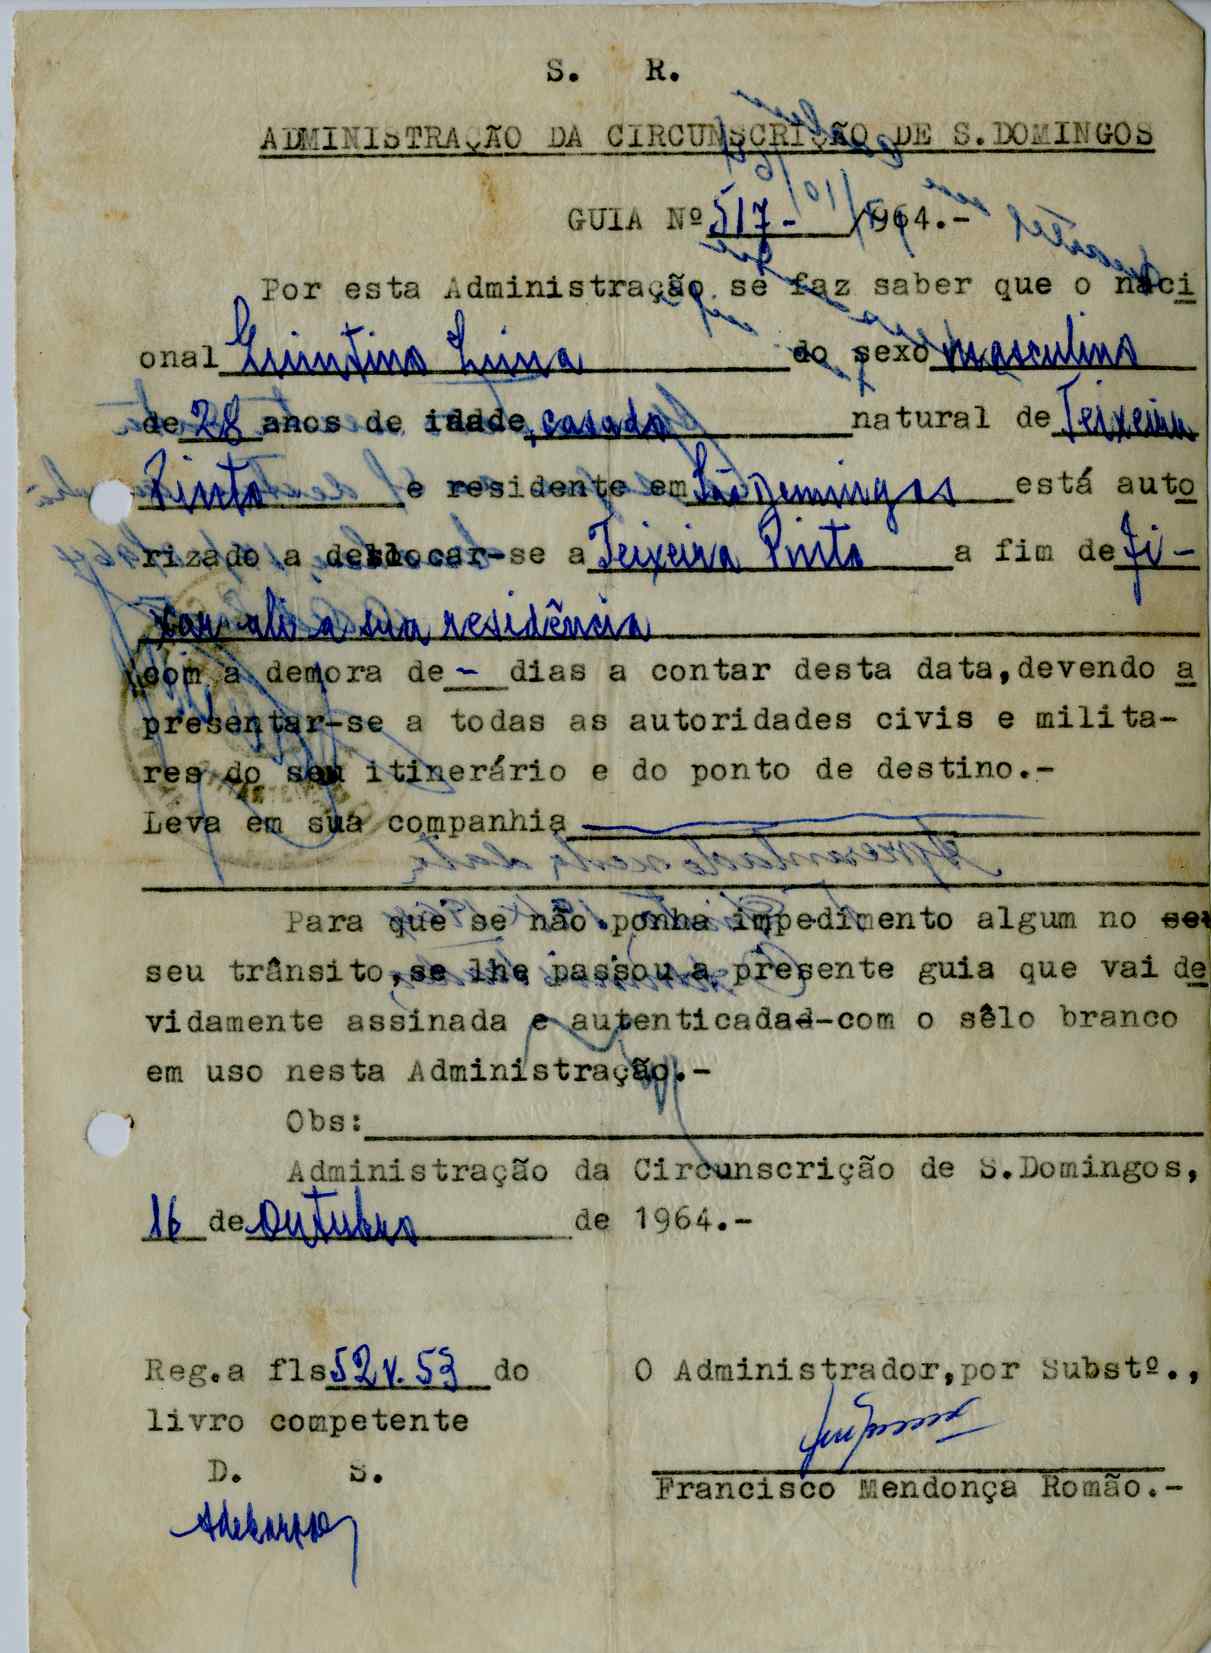 S. R.
ADMINISTRAÇÃO DA CIRCUNSCRIÇÃO DE S.DOMINGOS
GUIA Nº 517- /1964.-
Por esta Administração se faz saber que o naci
onal Quintino Lima do sexo masculino
de 28 anos de idade, casado natural de Teixeira
Pinto e residente em São Domingos está auto
rizado a deslocar-se a Teixeira Pinto a fim de fi-
xar ali a sua residência
com a demora de - dias a contar desta data,devendo a
presentar-se a todas as autoridades civis e milita-
res do seu itinerário e do ponto de destino.-
Leva em sua companhia
Para que se não ponha impedimento algum no seu
seu trânsito,se lhe passou a presente guia que vai de
vidamente assinada e autenticadad-com o sêlo branco
em uso nesta Administração.-
Obs:
Administração da Circunscrição de S.Domingos,
16 de Outubro de 1964.-
Reg.a fls 52v.53 do
O Administrador,por Substº.,
livro competente
D. S.
Francisco Mendonça Romão.-